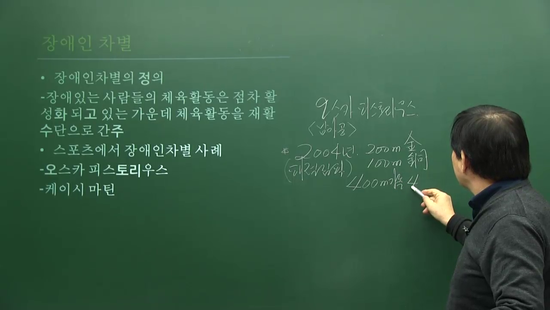 장애인 차별
• 장애인차별의 정의
-장애있는 사람들의 체육활동은 점차 활
성화 되고 있는 가운데 체육활동을 재활
수단으로 간주
• 스포츠에서 장애인차별 사례
-오스카 피스토리우스
-케이시 마틴
피스토리우스
2004년. 200m 金
100m
400m 4